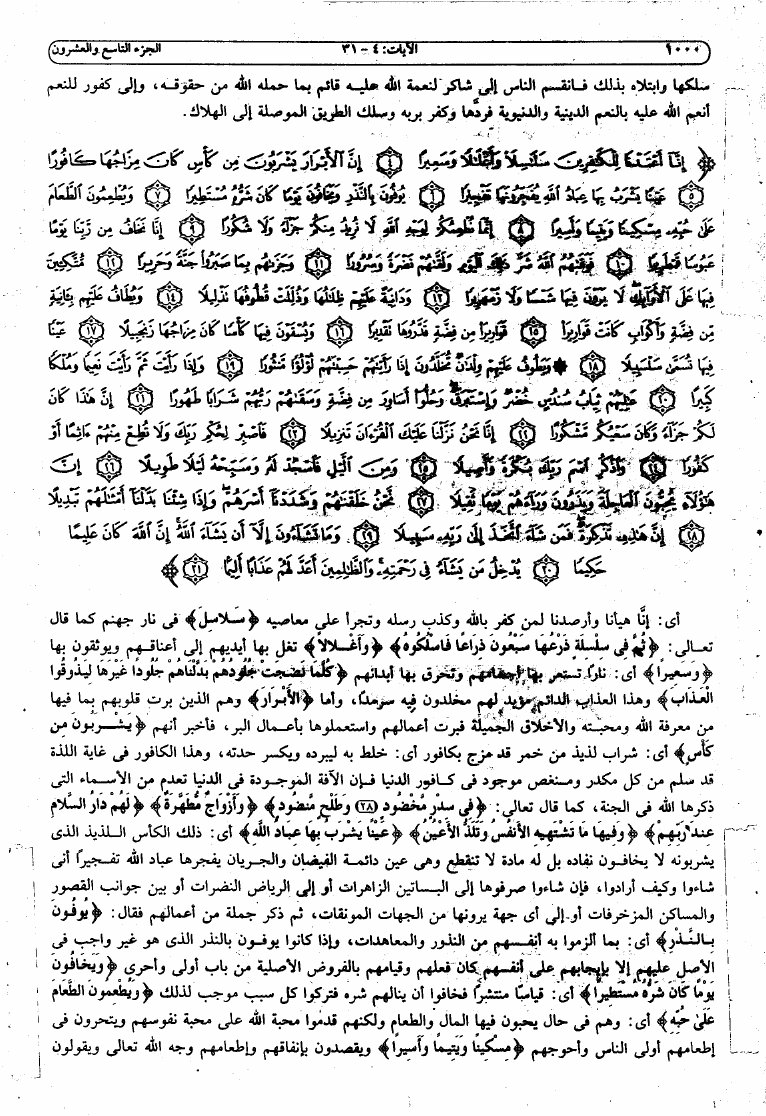 ١٠٠٠ الآيات: ٤ - ٣١ الجزء التاسع والعشرون
سلكها وابتلاه بذلك فانقسم الناس إلى شاكر لنعمة الله عليه قائم بما حمله الله من حقوقه، وإلى كفور للنعم
أنعم الله عليه بالنعم الدينية والدنيوية فردَّها وكفر بربه وسلك الطريق الموصلة إلى الهلاك.
﴿ إِنَّا أَعْتَدْنَا لِلْكَٰفِرِينَ سَلَٰسِلَا۟ وَأَغْلَٰلًا وَسَعِيرًا ﴿٤﴾ إِنَّ الْأَبْرَارَ يَشْرَبُونَ مِن كَأْسٍ كَانَ مِزَاجُهَا كَافُورًا
﴿٥﴾ عَيْنًا يَشْرَبُ بِهَا عِبَادُ اللَّهِ يُفَجِّرُونَهَا تَفْجِيرًا ﴿٦﴾ يُوفُونَ بِالنَّذْرِ وَيَخَافُونَ يَوْمًا كَانَ شَرُّهُ مُسْتَطِيرًا ﴿٧﴾ وَيُطْعِمُونَ الطَّعَامَ
عَلَىٰ حُبِّهِ مِسْكِينًا وَيَتِيمًا وَأَسِيرًا ﴿٨﴾ إِنَّمَا نُطْعِمُكُمْ لِوَجْهِ اللَّهِ لَا نُرِيدُ مِنكُمْ جَزَاءً وَلَا شُكُورًا ﴿٩﴾ إِنَّا نَخَافُ مِن رَّبِّنَا يَوْمًا
عَبُوسًا قَمْطَرِيرًا ﴿١٠﴾ فَوَقَىٰهُمُ اللَّهُ شَرَّ ذَٰلِكَ الْيَوْمِ وَلَقَّىٰهُمْ نَضْرَةً وَسُرُورًا ﴿١١﴾ وَجَزَىٰهُم بِمَا صَبَرُوا جَنَّةً وَحَرِيرًا ﴿١٢﴾ مُتَّكِئِينَ
فِيهَا عَلَى الْأَرَائِكِ لَا يَرَوْنَ فِيهَا شَمْسًا وَلَا زَمْهَرِيرًا ﴿١٣﴾ وَدَانِيَةً عَلَيْهِمْ ظِلَٰلُهَا وَذُلِّلَتْ قُطُوفُهَا تَذْلِيلًا ﴿١٤﴾ وَيُطَافُ عَلَيْهِم بِـَٔانِيَةٍ
مِّن فِضَّةٍ وَأَكْوَابٍ كَانَتْ قَوَارِيرَا۠ ﴿١٥﴾ قَوَارِيرَا۟ مِن فِضَّةٍ قَدَّرُوهَا تَقْدِيرًا ﴿١٦﴾ وَيُسْقَوْنَ فِيهَا كَأْسًا كَانَ مِزَاجُهَا زَنجَبِيلًا ﴿١٧﴾ عَيْنًا
فِيهَا تُسَمَّىٰ سَلْسَبِيلًا ﴿١٨﴾ ۞ وَيَطُوفُ عَلَيْهِمْ وِلْدَٰنٌ مُّخَلَّدُونَ إِذَا رَأَيْتَهُمْ حَسِبْتَهُمْ لُؤْلُؤًا مَّنثُورًا ﴿١٩﴾ وَإِذَا رَأَيْتَ ثَمَّ رَأَيْتَ نَعِيمًا وَمُلْكًا
كَبِيرًا ﴿٢٠﴾ عَٰلِيَهُمْ ثِيَابُ سُندُسٍ خُضْرٌ وَإِسْتَبْرَقٌ وَحُلُّوا أَسَاوِرَ مِن فِضَّةٍ وَسَقَىٰهُمْ رَبُّهُمْ شَرَابًا طَهُورًا ﴿٢١﴾ إِنَّ هَٰذَا كَانَ
لَكُمْ جَزَاءً وَكَانَ سَعْيُكُم مَّشْكُورًا ﴿٢٢﴾ إِنَّا نَحْنُ نَزَّلْنَا عَلَيْكَ الْقُرْءَانَ تَنزِيلًا ﴿٢٣﴾ فَاصْبِرْ لِحُكْمِ رَبِّكَ وَلَا تُطِعْ مِنْهُمْ ءَاثِمًا أَوْ
كَفُورًا ﴿٢٤﴾ وَاذْكُرِ اسْمَ رَبِّكَ بُكْرَةً وَأَصِيلًا ﴿٢٥﴾ وَمِنَ الَّيْلِ فَاسْجُدْ لَهُ وَسَبِّحْهُ لَيْلًا طَوِيلًا ﴿٢٦﴾ إِنَّ
هَٰؤُلَاءِ يُحِبُّونَ الْعَاجِلَةَ وَيَذَرُونَ وَرَاءَهُمْ يَوْمًا ثَقِيلًا ﴿٢٧﴾ نَّحْنُ خَلَقْنَٰهُمْ وَشَدَدْنَا أَسْرَهُمْ وَإِذَا شِئْنَا بَدَّلْنَا أَمْثَٰلَهُمْ تَبْدِيلًا
﴿٢٨﴾ إِنَّ هَٰذِهِ تَذْكِرَةٌ فَمَن شَاءَ اتَّخَذَ إِلَىٰ رَبِّهِ سَبِيلًا ﴿٢٩﴾ وَمَا تَشَاءُونَ إِلَّا أَن يَشَاءَ اللَّهُ إِنَّ اللَّهَ كَانَ عَلِيمًا
حَكِيمًا ﴿٣٠﴾ يُدْخِلُ مَن يَشَاءُ فِي رَحْمَتِهِ وَالظَّٰلِمِينَ أَعَدَّ لَهُمْ عَذَابًا أَلِيمًا ﴿٣١﴾ ﴾
أى: إنَّا هيأنا وأرصدنا لمن كفر بالله وكذب رسله وتجرأ على معاصيه ﴿سَلاسِلَ﴾ فى نار جهنم كما قال
تعالى: ﴿ثُمَّ فِي سِلْسِلَةٍ ذَرْعُهَا سَبْعُونَ ذِرَاعًا فَاسْلُكُوهُ﴾ ﴿وَأَغْلالاً﴾ تغل بها أيديهم إلى أعناقهم ويوثقون بها
﴿وَسَعِيراً﴾ أى: نارًا تستعر بها أجسامهم وتحرق بها أبدانهم ﴿كُلَّمَا نَضِجَتْ جُلُودُهُم بَدَّلْنَاهُمْ جُلُودًا غَيْرَهَا لِيَذُوقُوا
الْعَذَابَ﴾ وهذا العذاب الدائم مؤبد لهم مخلدون فيه سرمدًا، وأما ﴿الأَبْرَارَ﴾ وهم الذين برت قلوبهم بما فيها
من معرفة الله ومحبته والأخلاق الجميلة فبرت أعمالهم واستعملوها بأعمال البر، فأخبر أنهم ﴿يَشْرَبُونَ مِن
كَأْسٍ﴾ أى: شراب لذيذ من خمر قد مزج بكافور أى: خلط به ليبرده ويكسر حدته، وهذا الكافور فى غاية اللذة
قد سلم من كل مكدر ومنغص موجود فى كافور الدنيا فإن الآفة الموجودة فى الدنيا تعدم من الأسماء التى
ذكرها الله فى الجنة، كما قال تعالى: ﴿فِي سِدْرٍ مَّخْضُودٍ (٢٨) وَطَلْحٍ مَّنضُودٍ﴾ ﴿وَأَزْوَاجٌ مُّطَهَّرَةٌ﴾ ﴿لَهُمْ دَارُ السَّلامِ
عِندَ رَبِّهِمْ﴾ ﴿وَفِيهَا مَا تَشْتَهِيهِ الأَنفُسُ وَتَلَذُّ الأَعْيُنُ﴾ ﴿عَيْنًا يَشْرَبُ بِهَا عِبَادُ اللَّهِ﴾ أى: ذلك الكأس اللذيذ الذى
يشربونه لا يخافون نفاده بل له مادة لا تنقطع وهى عين دائمة الفيضان والجريان يفجرها عباد الله تفجيرًا أنى
شاءوا وكيف أرادوا، فإن شاءوا صرفوها إلى البساتين الزاهرات أو إلى الرياض النضرات أو بين جوانب القصور
والمساكن المزخرفات أو إلى أى جهة يرونها من الجهات المونقات، ثم ذكر جملة من أعمالهم فقال: ﴿يُوفُونَ
بِالنَّذْرِ﴾ أى: بما ألزموا به أنفسهم من النذور والمعاهدات، وإذا كانوا يوفون بالنذر الذى هو غير واجب فى
الأصل عليهم إلا بإيجابهم على أنفسهم كان فعلهم وقيامهم بالفروض الأصلية من باب أولى وأحرى ﴿وَيَخَافُونَ
يَوْمًا كَانَ شَرُّهُ مُسْتَطِيرًا﴾ أى: قياسًا منتشرًا فخافوا أن ينالهم شره فتركوا كل سبب موجب لذلك ﴿وَيُطْعِمُونَ الطَّعَامَ
عَلَىٰ حُبِّهِ﴾ أى: وهم فى حال يحبون فيها المال والطعام ولكنهم قدموا محبة الله على محبة نفوسهم ويتحرون فى
إطعامهم أولى الناس وأحوجهم ﴿مِسْكِينًا وَيَتِيمًا وَأَسِيرًا﴾ ويقصدون بإنفاقهم وإطعامهم وجه الله تعالى ويقولون